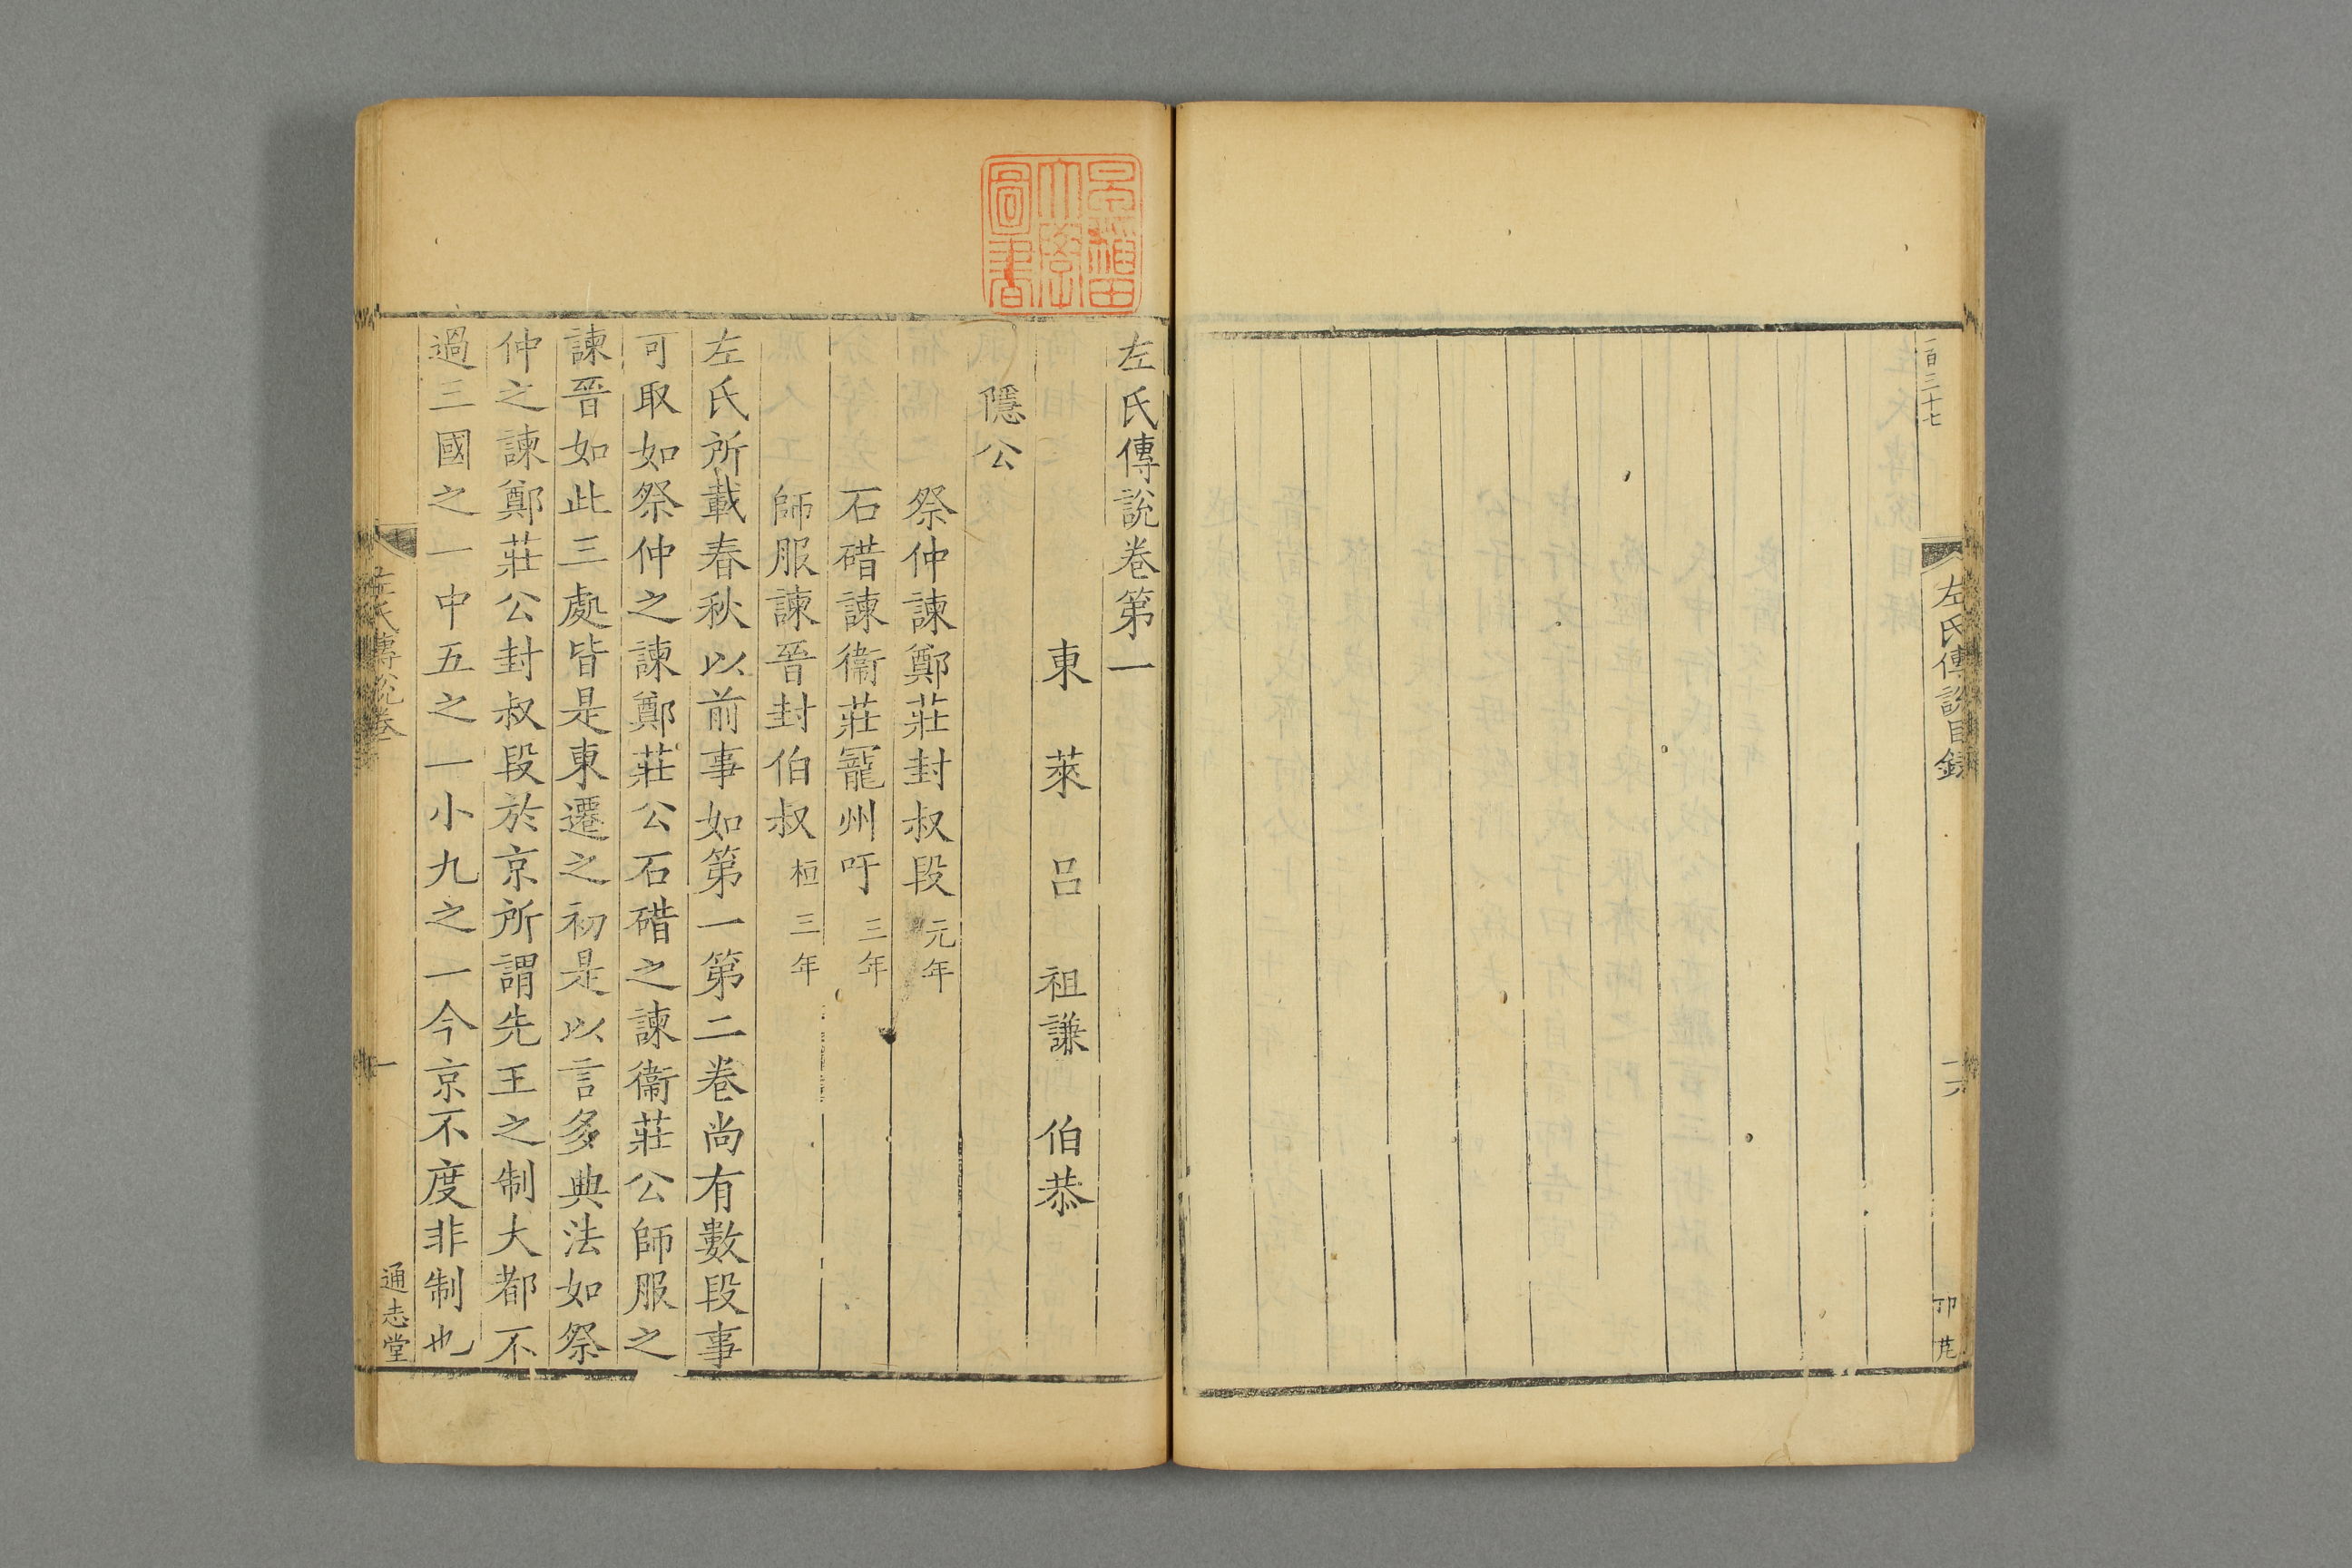 一百三十七
左氏傳說目錄
十六
左氏傳說卷第一
東萊呂祖謙伯恭
隱公
祭仲諫鄭莊封叔段元年
石碏諫衞莊寵州吁三年
師服諫晉封伯叔桓三年
左氏所載春秋以前事如第一第二卷尚有數段事
可取如祭仲之諫鄭莊公石碏之諫衞莊公師服之
諫晉如此三處皆是東遷之初是以言多典法如祭
仲之諫鄭莊公封叔段於京所謂先王之制大都不
過三國之一中五之一小九之一今京不度非制也
左氏傳說卷一
一
通志堂
早稲田大學圖書